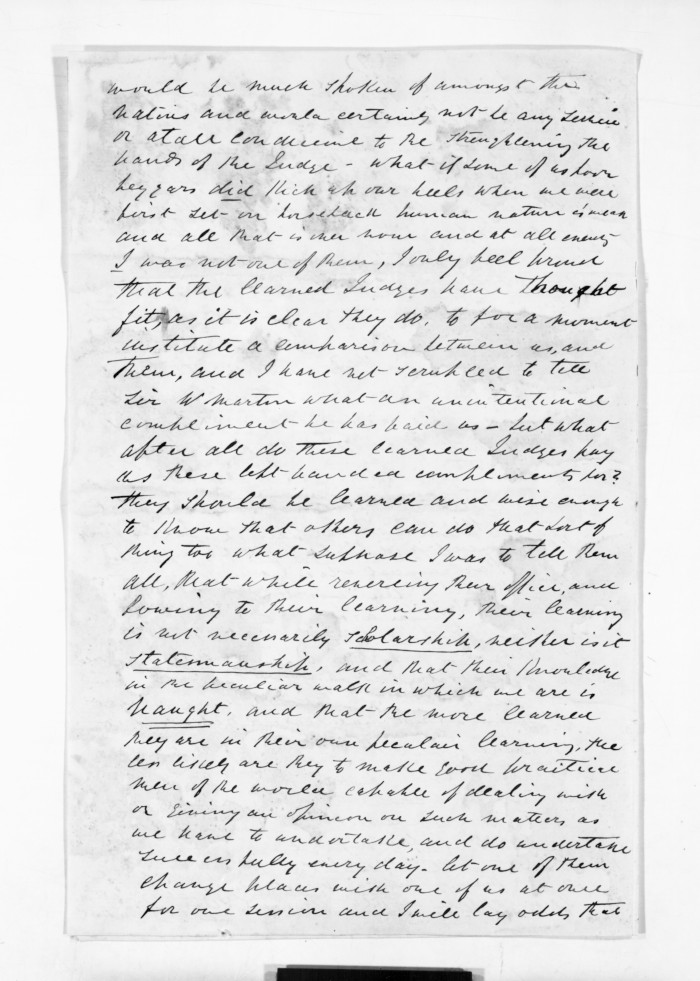 would be much spoken of amongst the
natives and would certainly not be any service
or at all conducive to the strengthening the
hands of the Judge - what if some of us poor
beggars did kick up our heels when we were
first set on horseback human nature is weak
and all that is over now and at all events
I was not one of them, I only feel proud
that the learned Judges have thought
fit, as it is clear they do, to for a moment
institute a comparison between us, and
them, and I have not scrupled to tell
Sir W Martin what an unintentional
compliment he has paid us - but what
after all do these learned Judges pay
us these left handed compliments for?
they should be learned and wise enough
to know that others can do that sort of
thing too what suppose I was to tell them
all, that while reverencing their office, and
bowing to their learning, their learning
is not necessarily scolarship, neither is it
statesmanship, and that their knowledge
in the peculiar walk in which we are is
naught, and that the more learned
they are in their own peculair learning, the
less likely are they to make good practical
men of the world capable of dealing with
or giving an opinion on such matters as
we have to undertake, and do undertake
successfully every day - let one of them
change places with one of us at once
for one session and I will lay odds that